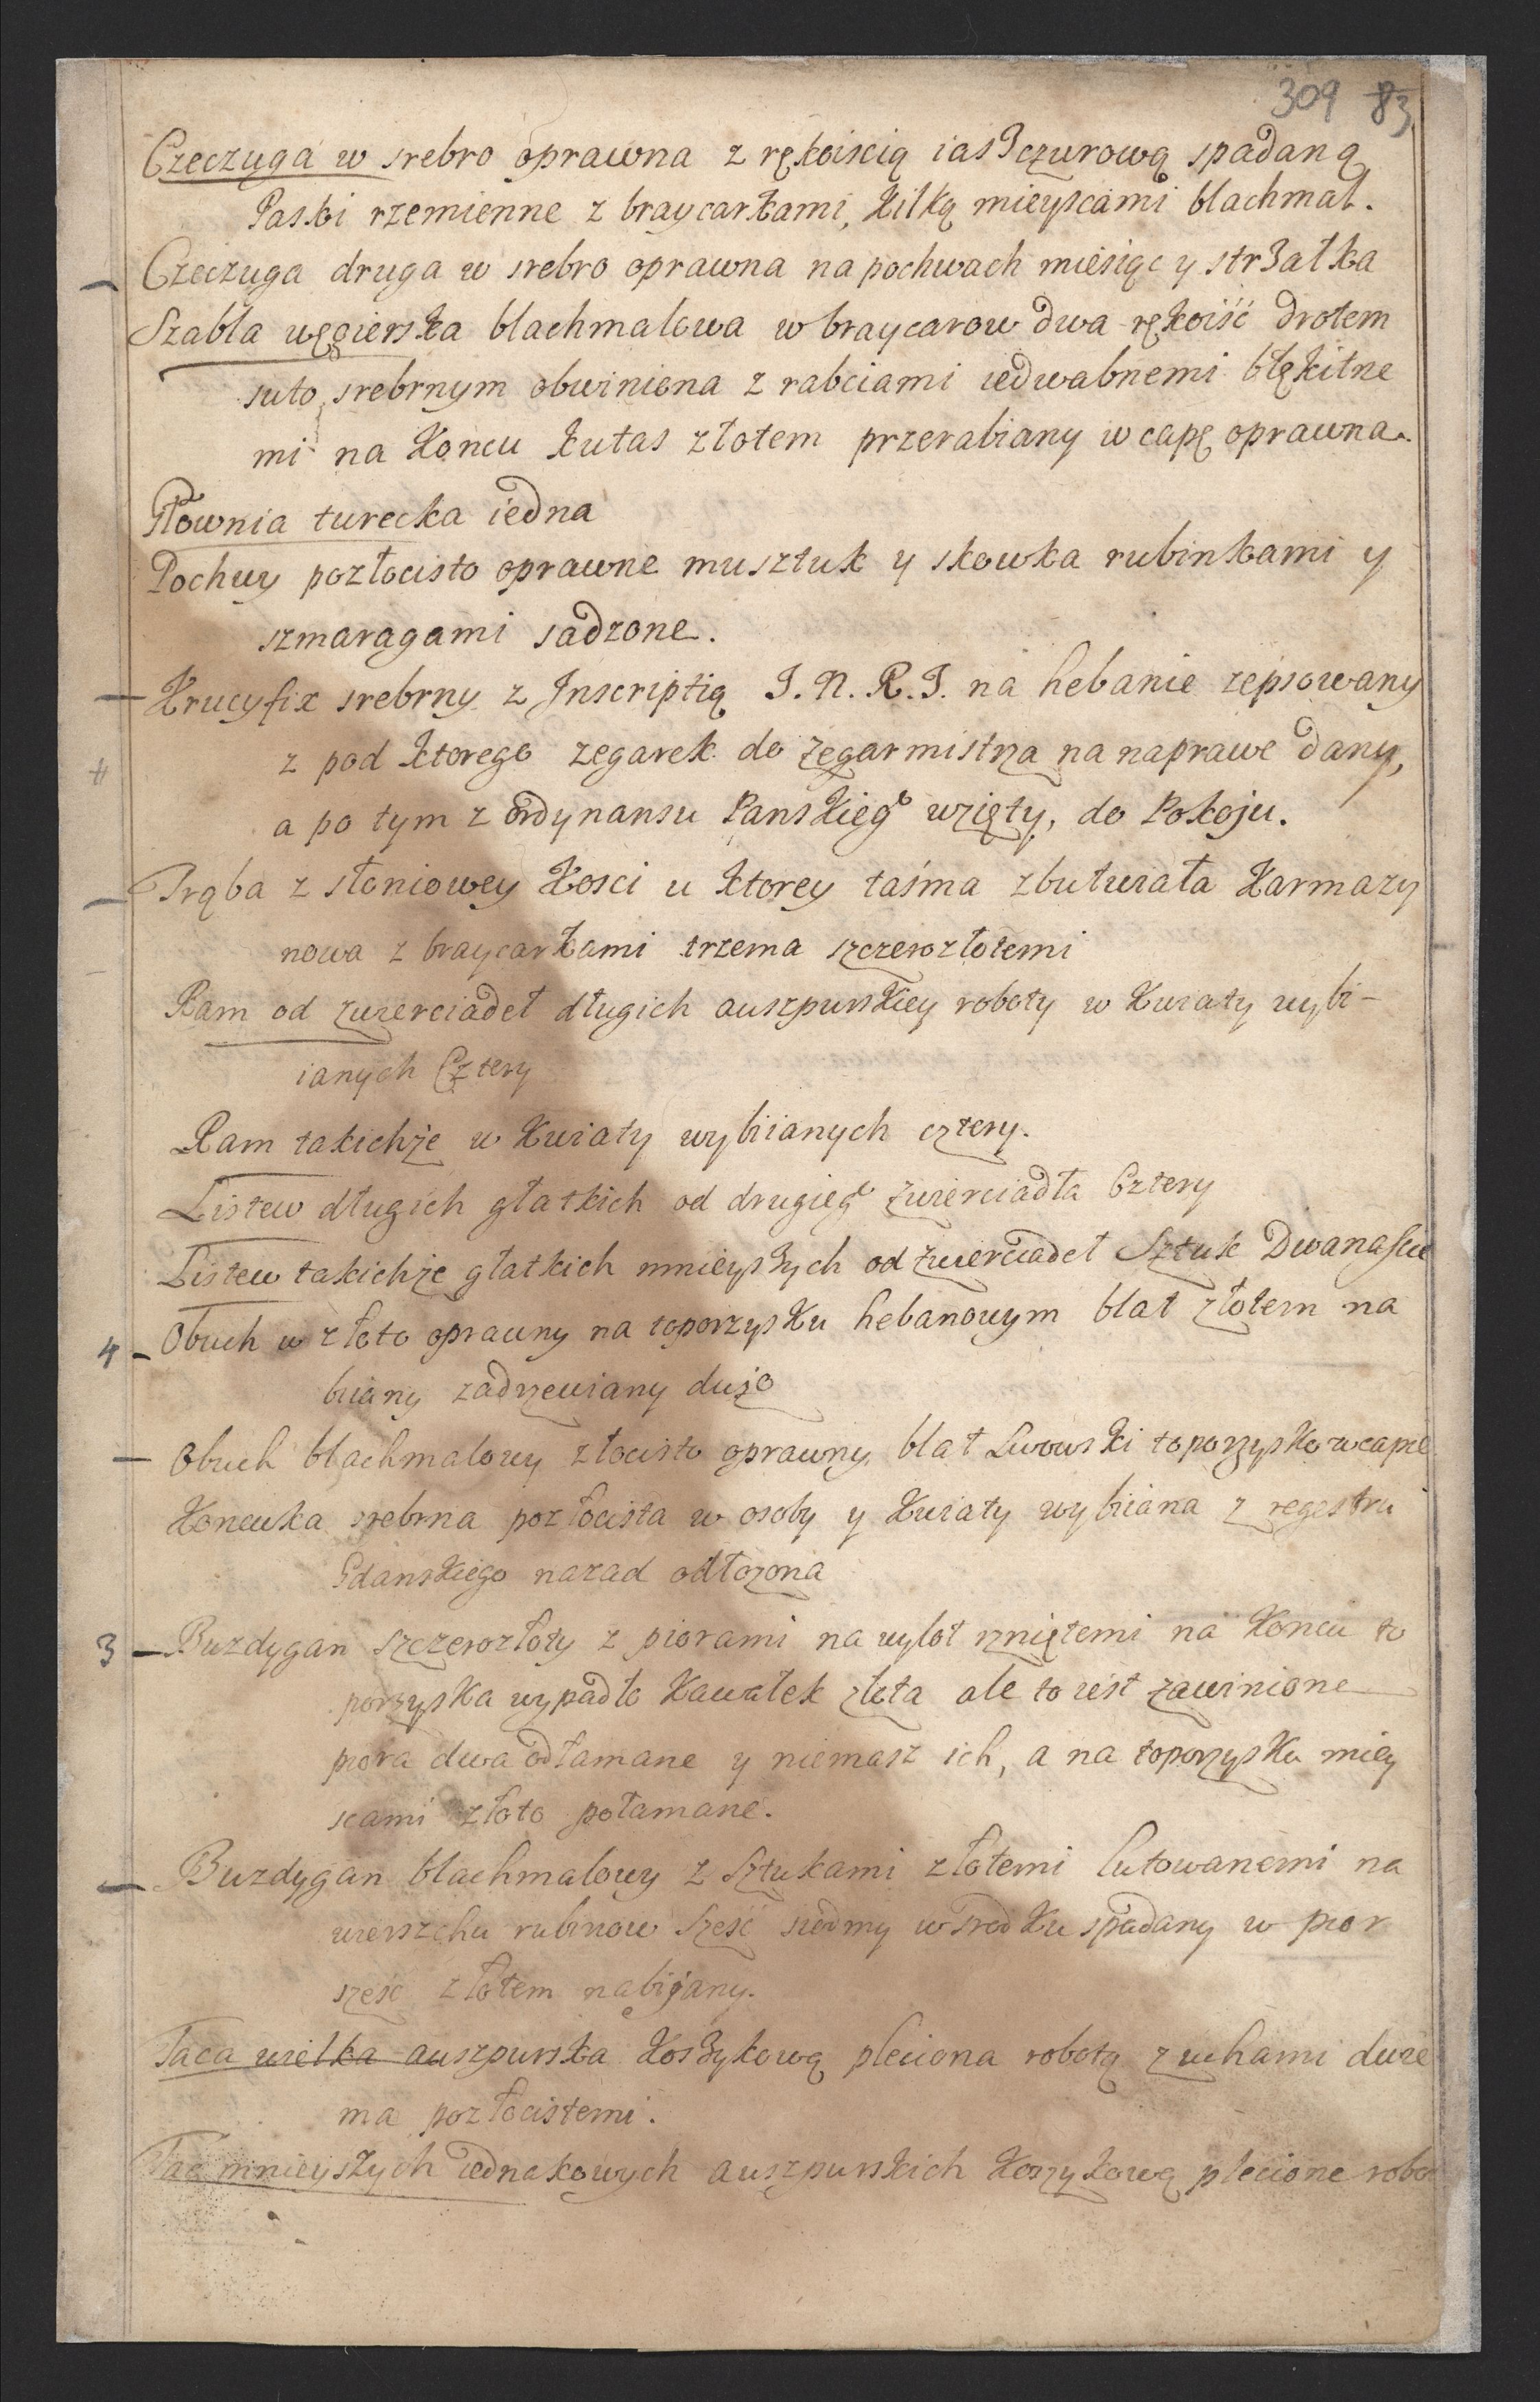 309 83
Czeczuga w srebro oprawna z rękoiscią iasczurową spadaną
Paski rzemienne z braycarkami, kilką mieyscami blachmal.
Czeczuga druga w srebro oprawna na pochwach miesiąc y strzałka
Szabla węgierska blachmalowa w braycarow dwa rękoiść drotem
suto srebrnym obwiniona z rabciami iedwabnemi błękitne
mi na koncu kutas złotem przerabiany w capę oprawna.
Głownia turecka iedna
Pochwy pozłocisto oprawne musztuk y skowka rubinkami y
szmaragami sadzone.
Krucyfix srebrny z Inscriptią I. N. R. I. na hebanie zepsowany
z pod ktorego zegarek do zegarmistrza na naprawe dany,
a po tym z ordynansu Panskieg° wzięty, do Pokoju.
Trąba z słoniowey kosci u ktorey taśma zbutwiała karmazy
nowa z braycarkami trzema szczerozłotemi
Ram od zwierciadeł długich auszpurskiey roboty w kwiaty wybi-
ianych Cztery
Ram takichże w kwiaty wybiianych cztery.
Listew długich głatkich od drugieg° zwierciadła Cztery
Listew takichże głatkich mnieyszych od zwierciadeł Sztuk Dwanascie
4 Obuch w złoto oprawny na toporzysku hebanowym blat złotem na
biiany zadrzewiany dużo
Obuch blachmalowy złocisto oprawny, blat Lwowski toporzysko w capie
Koncuka srebrna pozłocista w osoby y kwiaty wybiiana z regestru
Gdanskiego nazad odłozona
3 Buzdygan szczerozłoty z piorami na wylot rzniętemi na koncu to
porzyska wypadło kawałek złota ale to iest zawinione
piora dwa odłamane y niemasz ich, a na toporzysku miey
scami złoto połamane.
Buzdygan blachmalowy z sztukami złotemi lutowanemi na
wierszchu rubinow sześć siodmy w srodku spadany w pior
szesc złotem nabijany.
Taca wielka auszpurska koszykową pleciona robotą z uchami dwie
ma pozłocistemi.
Tac mnieyszych iednakowych auszpurskich koszykową plecione robo